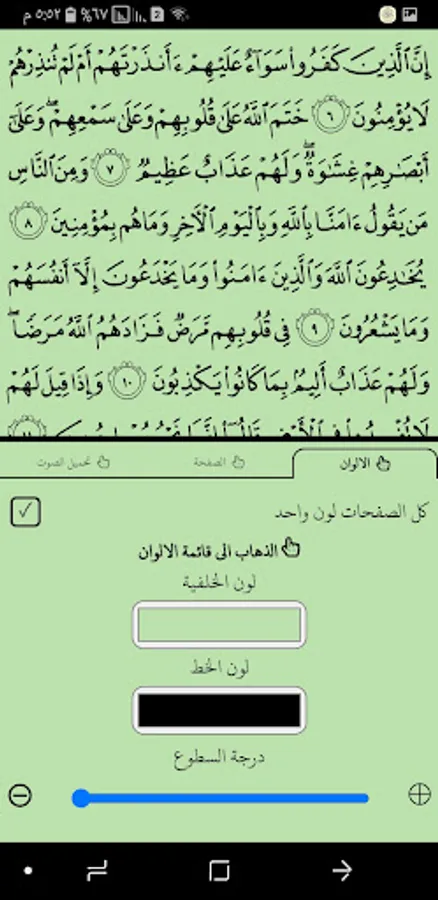 ٥:٥٢ م ٦٧%
إِنَّ ٱلَّذِينَ كَفَرُوا۟ سَوَآءٌ عَلَيْهِمْ ءَأَنذَرْتَهُمْ أَمْ لَمْ تُنذِرْهُمْ
لَا يُؤْمِنُونَ ٦ خَتَمَ ٱللَّهُ عَلَىٰ قُلُوبِهِمْ وَعَلَىٰ سَمْعِهِمْ ۖ وَعَلَىٰٓ
أَبْصَـٰرِهِمْ غِشَـٰوَةٌ ۖ وَلَهُمْ عَذَابٌ عَظِيمٌ ٧ وَمِنَ ٱلنَّاسِ
مَن يَقُولُ ءَامَنَّا بِٱللَّهِ وَبِٱلْيَوْمِ ٱلْـَٔاخِرِ وَمَا هُم بِمُؤْمِنِينَ ٨
يُخَـٰدِعُونَ ٱللَّهَ وَٱلَّذِينَ ءَامَنُوا۟ وَمَا يَخْدَعُونَ إِلَّآ أَنفُسَهُمْ
وَمَا يَشْعُرُونَ ٩ فِى قُلُوبِهِم مَّرَضٌ فَزَادَهُمُ ٱللَّهُ مَرَضًا ۖ
وَلَهُمْ عَذَابٌ أَلِيمٌۢ بِمَا كَانُوا۟ يَكْذِبُونَ ١٠ وَإِذَا قِيلَ لَهُمْ
الالوان
الصفحة
تحميل الصوت
كل الصفحات لون واحد
الذهاب الى قائمة الالوان
لون الخلفية
لون الخط
درجة السطوع